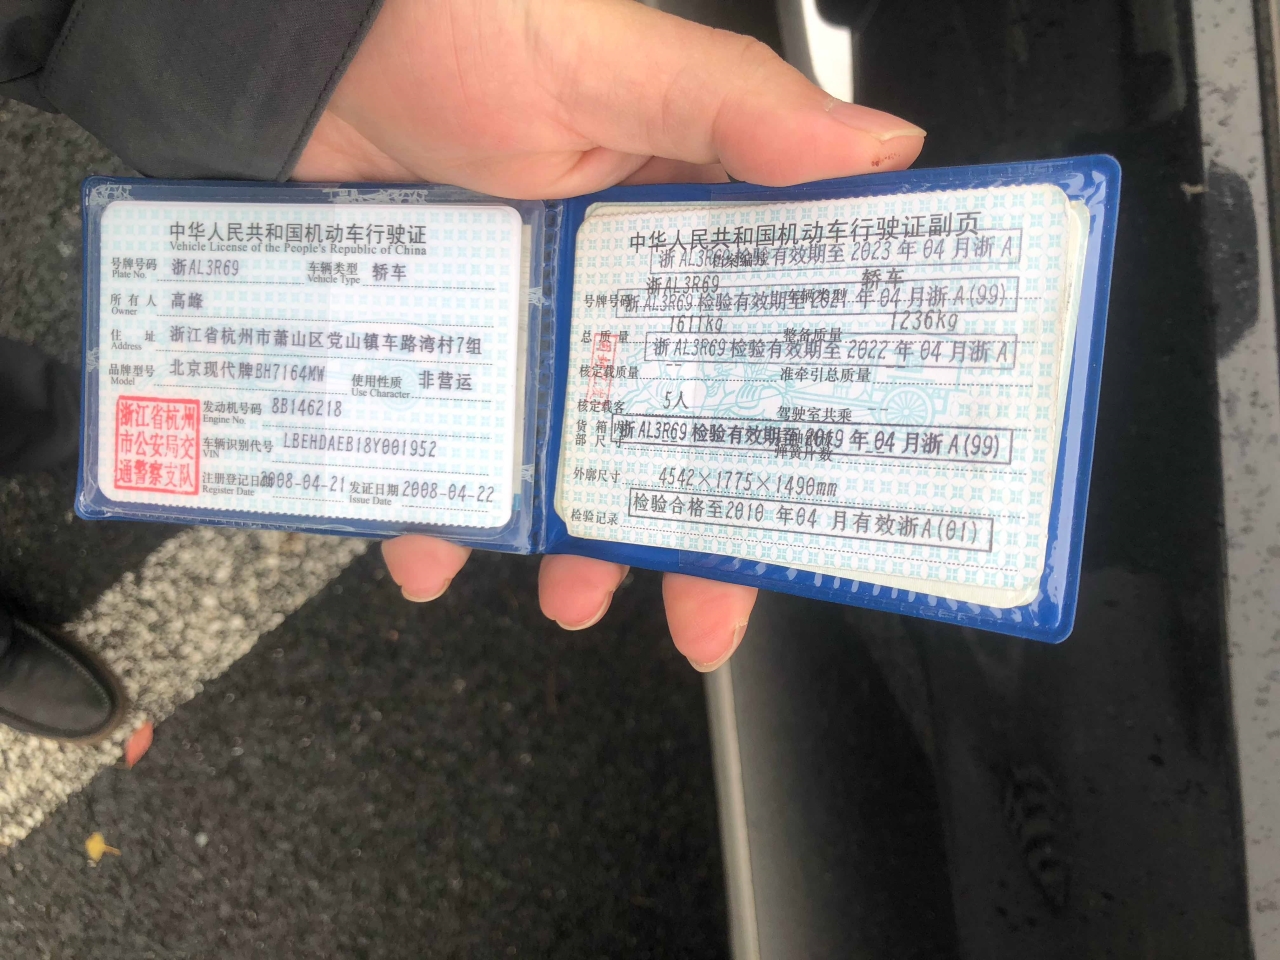 中华人民共和国机动车行驶证
Vehicle License of the People's Republic of China
号牌号码 浙AL3R69 车辆类型 轿车
Plate No. Vehicle Type
所有人 高峰
Owner
住址 浙江省杭州市萧山区党山镇车路湾村7组
Address
品牌型号 北京现代牌BH7164MW 使用性质 非营运
Model Use Character
浙江省杭州
市公安局交
通警察支队
发动机号码 8B146218
Engine No.
车辆识别代号 LBEHDAEB18Y001952
VIN
注册登记日期 2008-04-21 发证日期 2008-04-22
Register Date Issue Date
中华人民共和国机动车行驶证副页
浙AL3R69 检验有效期至2023年04月浙A
浙AL3R69 轿车
号牌号码 车辆类型
浙AL3R69检验有效期至2021年04月浙A(99)
1611kg 1236kg
总质量 整备质量
浙AL3R69检验有效期至2022年04月浙A
核定载质量 -- 准牵引总质量
核定载客 5人 驾驶室共乘 --
货箱内
部尺寸
浙AL3R69检验有效期至2019年04月浙A(99)
外廓尺寸 4542×1775×1490mm
检验记录 检验合格至2010年04月有效浙A(01)